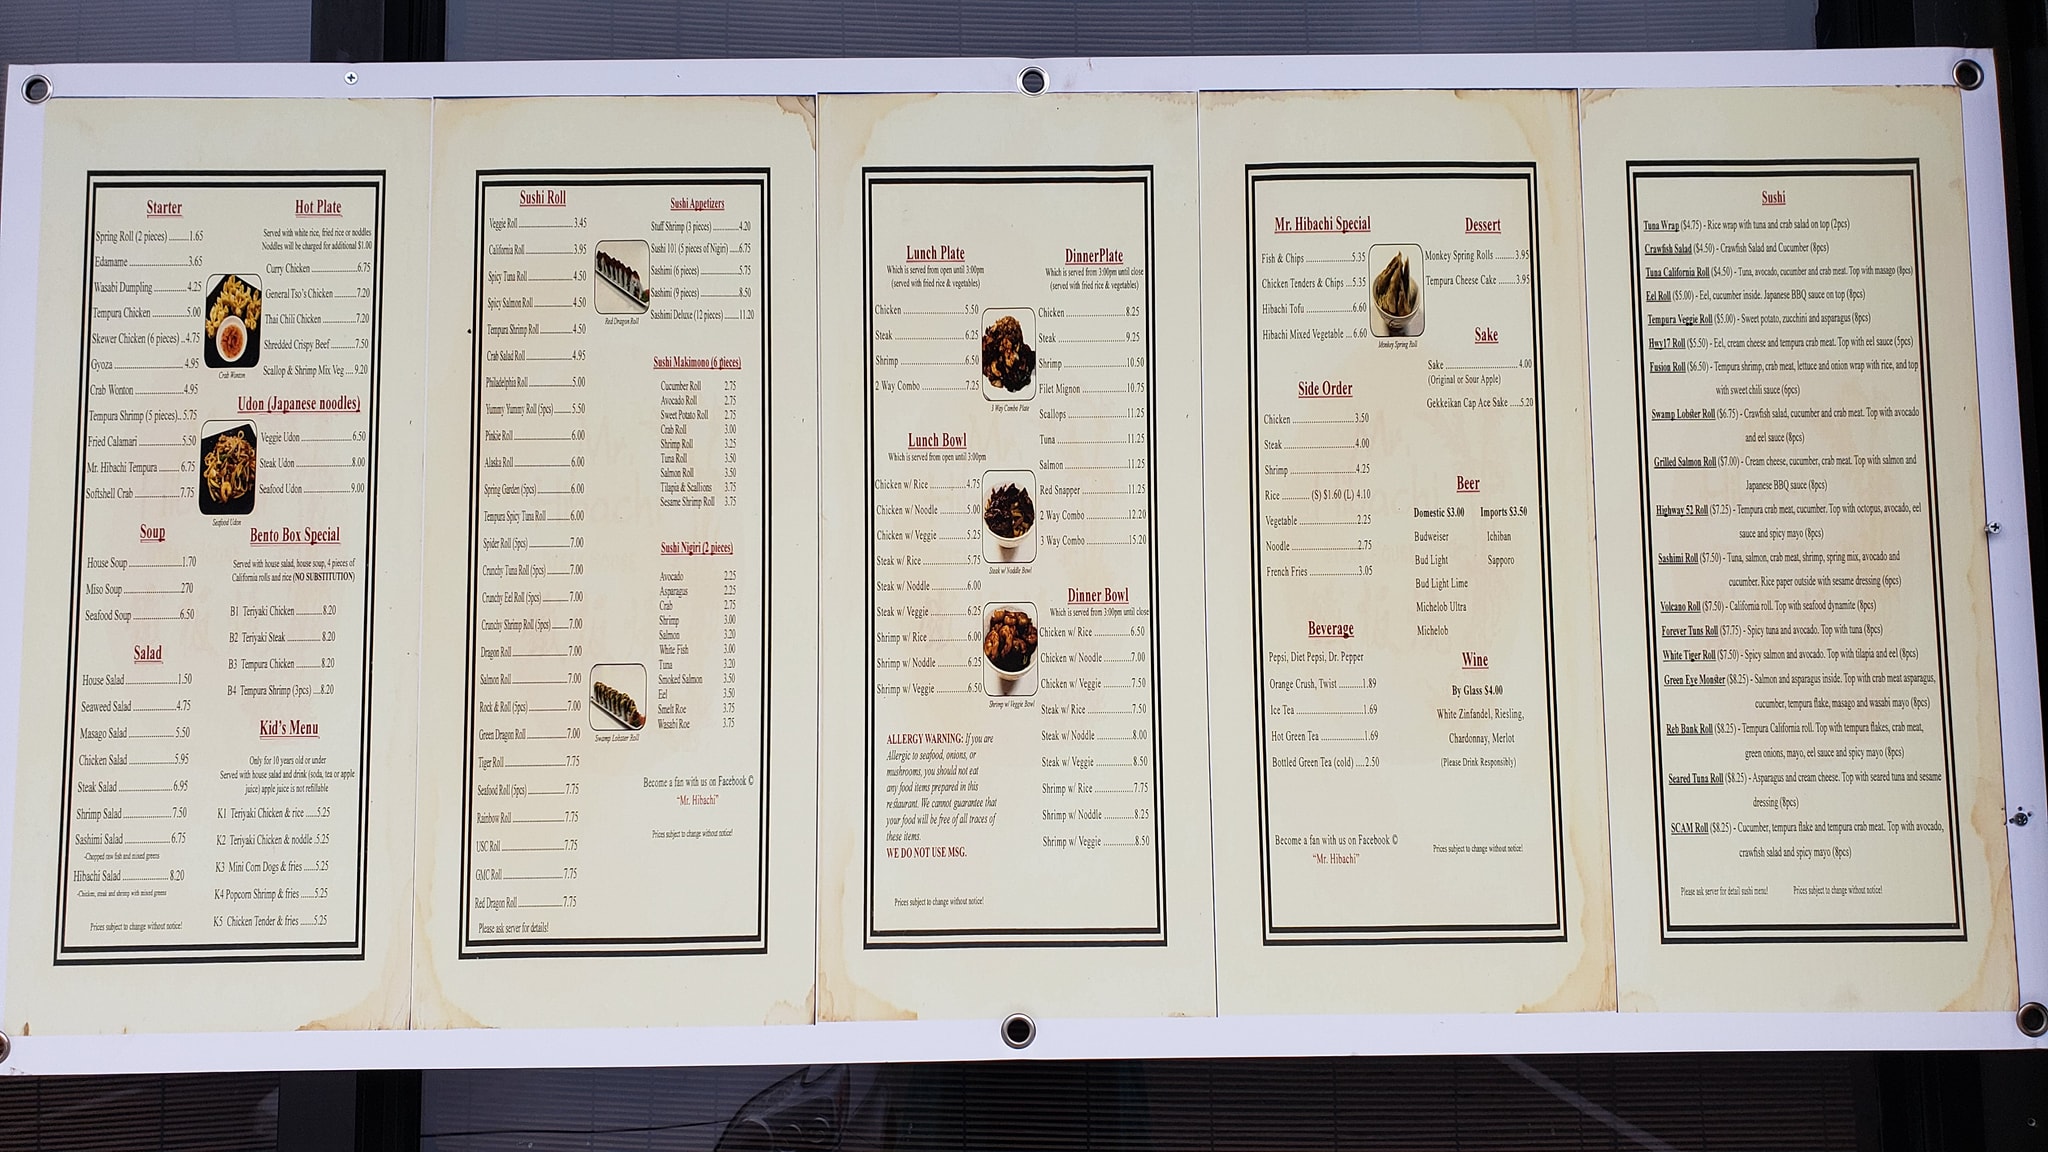 Starter
Spring Roll (2 pieces) .........1.65
Edamame ........................3.65
Wasabi Dumpling .............4.25
Tempura Chicken .............5.00
Skewer Chicken (6 pieces) ..4.75
Gyoza .............................4.95
Crab Wonton ...................4.95
Tempura Shrimp (5 pieces).. 5.75
Fried Calamari .................5.50
Mr. Hibachi Tempura ......... 6.75
Softshell Crab ..................7.75
Soup
House Soup ......................1.70
Miso Soup .......................270
Seafood Soup ...................6.50
Salad
House Salad .....................1.50
Seaweed Salad ..................4.75
Masago Salad ...................5.50
Chicken Salad ..................5.95
Steak Salad .....................6.95
Shrimp Salad ...................7.50
Sashimi Salad ..................6.75
-Chopped raw fish and mixed greens
Hibachi Salad ..................8.20
-Chicken, steak and shrimp with mixed greens
Prices subject to change without notice!
Hot Plate
Served with white rice, fried rice or noddles
Noddles will be charged for additional $1.00
Curry Chicken ..................6.75
General Tso's Chicken ........7.20
Thai Chili Chicken .............7.20
Shredded Crispy Beef .........7.50
Scallop & Shrimp Mix Veg ....9.20
Crab Wonton
Udon (Japanese noodles)
Veggie Udon ....................6.50
Steak Udon .....................8.00
Seafood Udon ..................9.00
Seafood Udon
Bento Box Special
Served with house salad, house soup, 4 pieces of
California rolls and rice (NO SUBSTITUTION)
B1 Teriyaki Chicken ...........8.20
B2 Teriyaki Steak ..............8.20
B3 Tempura Chicken ..........8.20
B4 Tempura Shrimp (3pcs) ...8.20
Kid's Menu
Only for 10 years old or under
Served with house salad and drink (soda, tea or apple
juice) apple juice is not refillable
K1 Teriyaki Chicken & rice .....5.25
K2 Teriyaki Chicken & noddle .5.25
K3 Mini Corn Dogs & fries ......5.25
K4 Popcorn Shrimp & fries .....5.25
K5 Chicken Tender & fries ......5.25
Sushi Roll
Veggie Roll ......................3.45
California Roll ..................3.95
Spicy Tuna Roll .................4.50
Spicy Salmon Roll ..............4.50
Tempura Shrimp Roll ..........4.50
Crab Salad Roll .................4.95
Philadelphia Roll ...............5.00
Yummy Yummy Roll (5pcs) ....5.50
Pinkie Roll .......................6.00
Alaska Roll ......................6.00
Spring Garden (5pcs) ..........6.00
Tempura Spicy Tuna Roll ......6.00
Spider Roll (5pcs) ..............7.00
Crunchy Tuna Roll (5pcs) ......7.00
Crunchy Eel Roll (5pcs) ........7.00
Crunchy Shrimp Roll (5pcs) ...7.00
Dragon Roll .....................7.00
Salmon Roll .....................7.00
Rock & Roll (5pcs) ..............7.00
Green Dragon Roll ..............7.00
Tiger Roll ........................7.75
Seafood Roll (5pcs) .............7.75
Rainbow Roll ....................7.75
USC Roll .........................7.75
GMC Roll ........................7.75
Red Dragon Roll ................7.75
Please ask server for details!
Sushi Appetizers
Stuff Shrimp (3 pieces) .........4.20
Sushi 101 (5 pieces of Nigiri) ....6.75
Sashimi (6 pieces) ..............5.75
Sashimi (9 pieces) ..............8.50
Sashimi Deluxe (12 pieces) .....11.20
Red Dragon Roll
Sushi Makimono (6 pieces)
Cucumber Roll 2.75
Avocado Roll 2.75
Sweet Potato Roll 2.75
Crab Roll 3.00
Shrimp Roll 3.25
Tuna Roll 3.50
Salmon Roll 3.50
Tilapia & Scallions 3.75
Sesame Shrimp Roll 3.75
Sushi Nigiri (2 pieces)
Avocado 2.25
Asparagus 2.25
Crab 2.75
Shrimp 3.00
Salmon 3.20
White Fish 3.00
Tuna 3.20
Smoked Salmon 3.50
Eel 3.50
Smelt Roe 3.75
Wasabi Roe 3.75
Swamp Lobster Roll
Become a fan with us on Facebook ©
"Mr. Hibachi"
Prices subject to change without notice!
Lunch Plate
Which is served from open until 3:00pm
(served with fried rice & vegetables)
Chicken ........................5.50
Steak ...........................6.25
Shrimp .........................6.50
2 Way Combo .................7.25
3 Way Combo Plate
Lunch Bowl
Which is served from open until 3:00pm
Chicken w/ Rice ..............4.75
Chicken w/ Noodle ...........5.00
Chicken w/ Veggie ...........5.25
Steak w/ Rice .................5.75
Steak w/ Noddle ..............6.00
Steak w/ Veggie ..............6.25
Shrimp w/ Rice ...............6.00
Shrimp w/ Noddle ............6.25
Shrimp w/ Veggie ............6.50
Steak w/ Noddle Bowl
Shrimp w/ Veggie Bowl
ALLERGY WARNING: If you are
Allergic to seafood, onions, or
mushrooms, you should not eat
any food items prepared in this
restaurant. We cannot guarantee that
your food will be free of all traces of
these items.
WE DO NOT USE MSG.
Prices subject to change without notice!
DinnerPlate
Which is served from 3:00pm until close
(served with fried rice & vegetables)
Chicken ........................8.25
Steak ...........................9.25
Shrimp .........................10.50
Filet Mignon ..................10.75
Scallops ........................11.25
Tuna ............................11.25
Salmon .........................11.25
Red Snapper ..................11.25
2 Way Combo .................12.20
3 Way Combo .................15.20
Dinner Bowl
Which is served from 3:00pm until close
Chicken w/ Rice ..............6.50
Chicken w/ Noodle ...........7.00
Chicken w/ Veggie ...........7.50
Steak w/ Rice .................7.50
Steak w/ Noddle ..............8.00
Steak w/ Veggie ..............8.50
Shrimp w/ Rice ...............7.75
Shrimp w/ Noddle ............8.25
Shrimp w/ Veggie ............8.50
Mr. Hibachi Special
Fish & Chips ...................5.35
Chicken Tenders & Chips ...5.35
Hibachi Tofu ...................6.60
Hibachi Mixed Vegetable ...6.60
Side Order
Chicken ........................3.50
Steak ...........................4.00
Shrimp .........................4.25
Rice ............ (S) $1.60 (L) 4.10
Vegetable ......................2.25
Noodle .........................2.75
French Fries ...................3.05
Beverage
Pepsi, Diet Pepsi, Dr. Pepper
Orange Crush, Twist ..........1.89
Ice Tea .........................1.69
Hot Green Tea .................1.69
Bottled Green Tea (cold) ....2.50
Become a fan with us on Facebook ©
"Mr. Hibachi"
Dessert
Monkey Spring Rolls .........3.95
Tempura Cheese Cake ........3.95
Monkey Spring Roll
Sake
Sake .............................4.00
(Original or Sour Apple)
Gekkeikan Cap Ace Sake .....5.20
Beer
Domestic $3.00 Imports $3.50
Budweiser Ichiban
Bud Light Sapporo
Bud Light Lime
Michelob Ultra
Michelob
Wine
By Glass $4.00
White Zinfandel, Riesling,
Chardonnay, Merlot
(Please Drink Responsibly)
Prices subject to change without notice!
Sushi
Tuna Wrap ($4.75) - Rice wrap with tuna and crab salad on top (2pcs)
Crawfish Salad ($4.50) - Crawfish Salad and Cucumber (8pcs)
Tuna California Roll ($4.50) - Tuna, avocado, cucumber and crab meat. Top with masago (8pcs)
Eel Roll ($5.00) - Eel, cucumber inside. Japanese BBQ sauce on top (8pcs)
Tempura Veggie Roll ($5.00) - Sweet potato, zucchini and asparagus (8pcs)
Hwy17 Roll ($5.50) - Eel, cream cheese and tempura crab meat. Top with eel sauce (5pcs)
Fusion Roll ($6.50) - Tempura shrimp, crab meat, lettuce and onion wrap with rice, and top
with sweet chili sauce (6pcs)
Swamp Lobster Roll ($6.75) - Crawfish salad, cucumber and crab meat. Top with avocado
and eel sauce (8pcs)
Grilled Salmon Roll ($7.00) - Cream cheese, cucumber, crab meat. Top with salmon and
Japanese BBQ sauce (8pcs)
Highway 52 Roll ($7.25) - Tempura crab meat, cucumber. Top with octopus, avocado, eel
sauce and spicy mayo (8pcs)
Sashimi Roll ($7.50) - Tuna, salmon, crab meat, shrimp, spring mix, avocado and
cucumber. Rice paper outside with sesame dressing (6pcs)
Volcano Roll ($7.50) - California roll. Top with seafood dynamite (8pcs)
Forever Tuns Roll ($7.75) - Spicy tuna and avocado. Top with tuna (8pcs)
White Tiger Roll ($7.50) - Spicy salmon and avocado. Top with tilapia and eel (8pcs)
Green Eye Monster ($8.25) - Salmon and asparagus inside. Top with crab meat asparagus,
cucumber, tempura flake, masago and wasabi mayo (8pcs)
Reb Bank Roll ($8.25) - Tempura California roll. Top with tempura flakes, crab meat,
green onions, mayo, eel sauce and spicy mayo (8pcs)
Seared Tuna Roll ($8.25) - Asparagus and cream cheese. Top with seared tuna and sesame
dressing (8pcs)
SCAM Roll ($8.25) - Cucumber, tempura flake and tempura crab meat. Top with avocado,
crawfish salad and spicy mayo (8pcs)
Please ask server for detail sushi menu! Prices subject to change without notice!